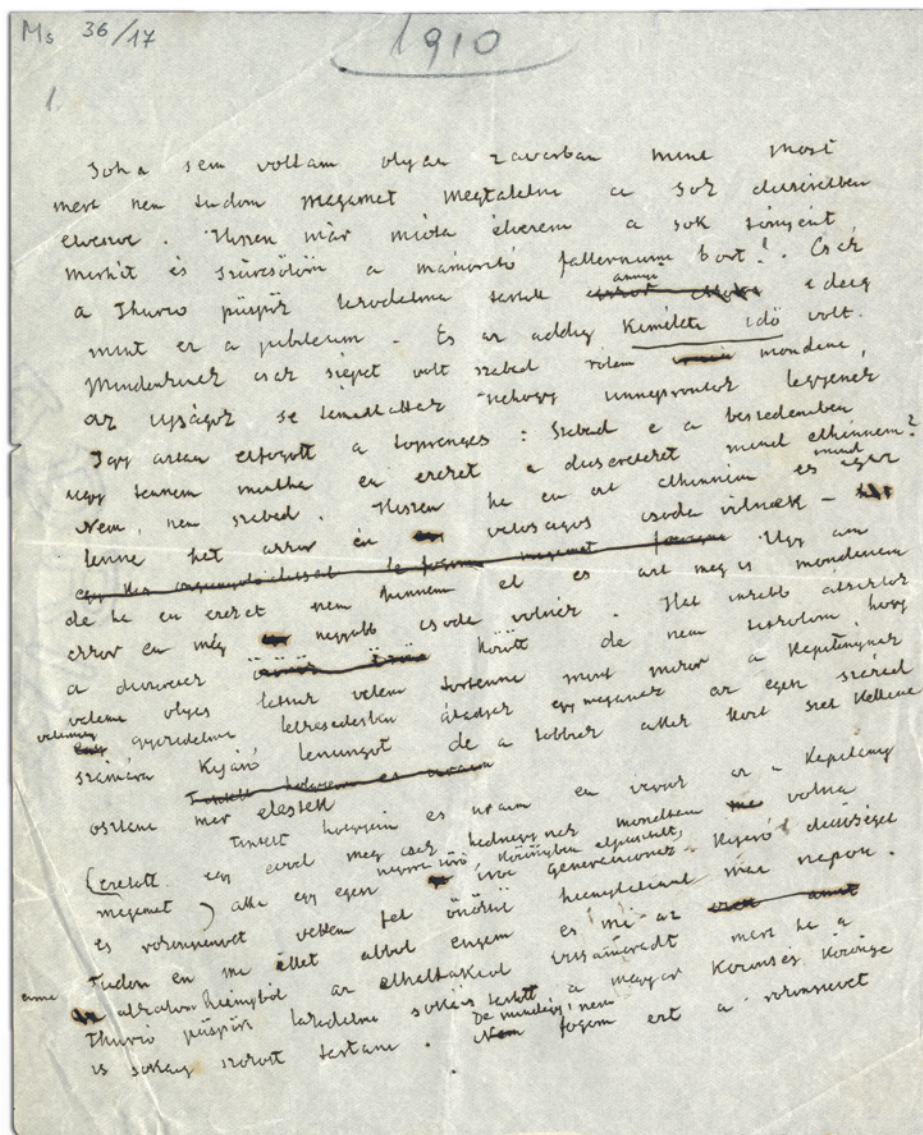 Ms 36/17
1910
1.
Soha sem voltam olyan zavarban mint most
mert nem tudom magamat megtalalni a sok dicseretben
elveszve. Hiszen már mióta élvezem a sok
mirhát és szürcsölöm a mámorító fallernumi bort! Csak
a Thurzo püspök lakodalma tartott annyi ideig
mint ez a jubileum. És az addig kiméleti idő volt.
Mindenkinek csak szepet volt szabad rolam mondani,
az ujságok se támadtattak nehogy unneprontok legyenek
Igy aztan elfogott a toprenges: Szabad e a beszedemben
ugy tennem mintha en ezeket a dicsereteket mind elhinnem?
Nem, nem szabad. Hiszen ha en azt elhinnem es mind igaz
lenne hat akkor én valosagos csoda volnék –
Ugy am
de ha en ezeket nem hinnem el es azt meg is mondanam
akkor en még nagyobb csoda volnék. Hat inkabb
a dicseret között de nem titkolom hogy
velem olyas latszik velem tortenni mint mikor a kapitánynak
valamely gyozedelmi letkesedesben átadjak egymaganak az egesz század
számára kijáró lenungot de a tobbiek akik kozt szet kellene
osztani mar elestek
Tisztelt holgyeim es uraim en vagyok az a kapitany
(ezelott egy evvel meg csak hadnagynak mondtam volna
magamat) aki egy egesz nagyra törő, körülményben elpusztult, iroi generacionak kijáró dicsőséget
es rozsonyenvet vettem fel önöktül hianytalanul mai napon.
Tudom en mi illet abbol engem es mi az
anno alkalom hiányból az elhaltakéval összámaradt mert ha a
Thurzo püspök lakodalma sokáig tartott a magyar Közönség közönye
is sokaig szokott tartani. De mindegy, nem fogom ezt a rozsonyevet